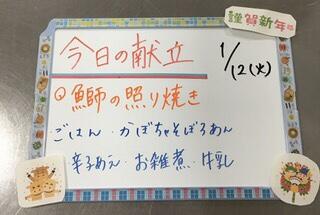 謹賀新年
今日の献立
1/12(火)
鰤の照り焼き
ごはん・かぼちゃそぼろあん
辛子あえ・お雑煮・牛乳